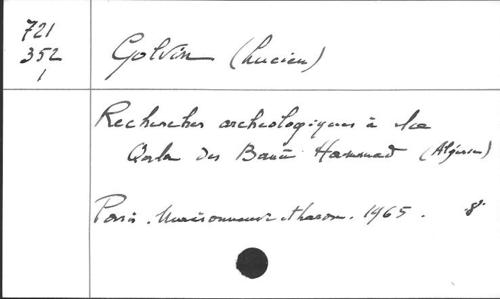 721
352
1
Golvin (Lucien)
Recherches archeologiques à la
Qal'a des Banū Hammad (Algérie)
Paris. Maisonneuve et Larose. 1965. 8°